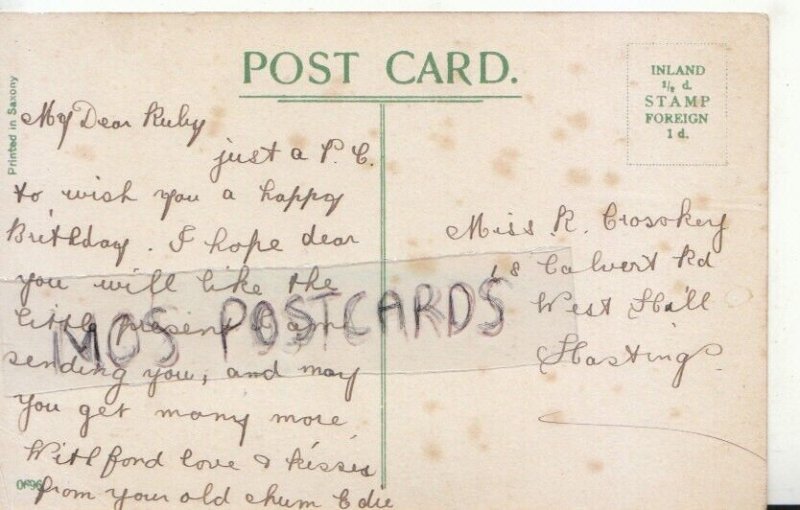 POST CARD.
INLAND
½ d.
STAMP
FOREIGN
1 d.
Printed in Saxony
My Dear Ruby
just a P. C.
to wish you a happy
Birthday. I hope dear
you will like the
little present I am
sending you, and may
you get many more
With fond love & kisses
from your old chum Edie
Miss R. Crosskey
18 Calvert Rd
West Hill
Hastings
MOS POSTCARDS